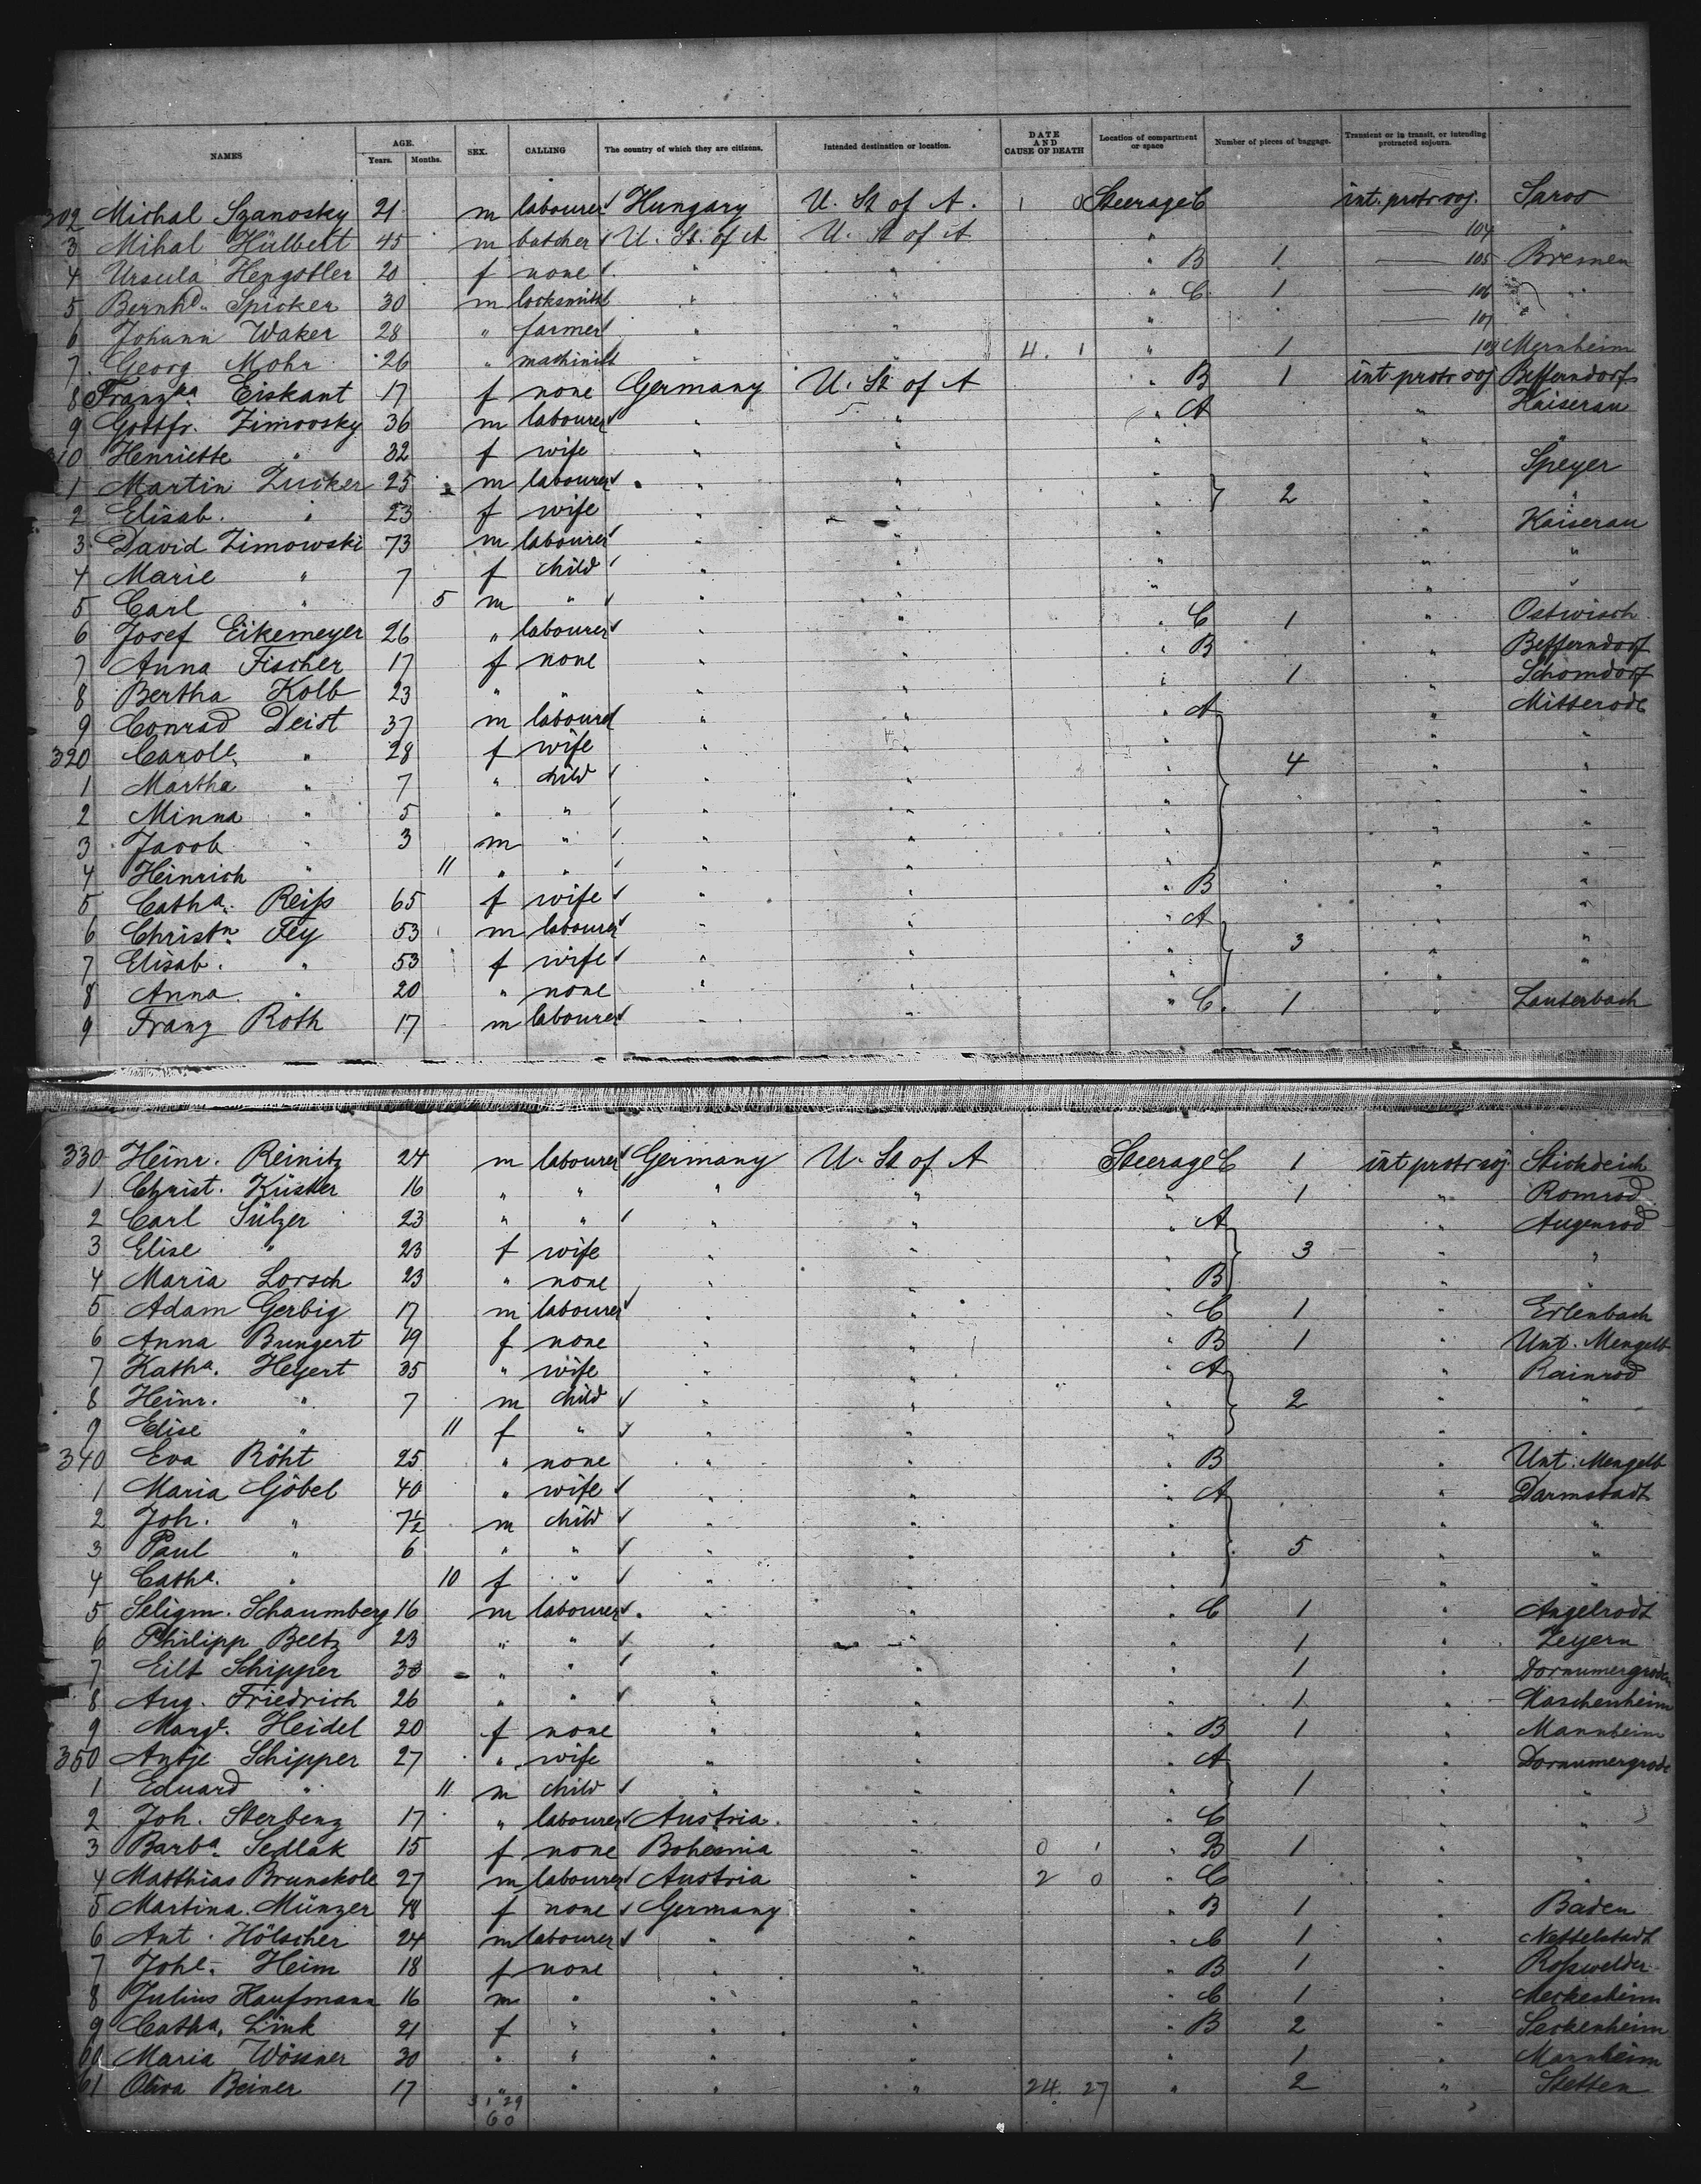 NAMES AGE. Years. Months. SEX. CALLING The country of which they are citizens. Intended destination or location. DATE AND CAUSE OF DEATH Location of compartment or space Number of pieces of baggage. Transient or in transit, or intending protracted sojourn.
302 Michal Szanosky 21 m labourer Hungary U. St of A. 1 0 Steerage C int. protr soj. Saros
3 Mihal Hülbert 45 m butcher U. St. of A U. St of A " 104 "
4 Ursula Hengstler 20 f none " " " B 1 105 Bremen
5 Bernhd. Spicker 30 m locksmith " " " C 1 106 "
6 Johann Waker 28 " farmer " " " 107 "
7 Georg Mohr 26 " machinist " " 4. 1 " 1 108 Mernheim
8 Franzka Eiskant 17 f none Germany U. St of A " B 1 int protr soj Befferndorf
9 Gottfr. Zimovsky 36 m labourer " " " A " Kaiserau
310 Henriette " 32 f wife " " " " "
1 Martin Zucker 25 m labourer " " " 2 " Speyer
2 Elisab. " 23 f wife " " " " "
3 David Zimowski 73 m labourer " " " " Kaiserau
4 Marie " 7 f child " " " " "
5 Carl " 5 m " " " " " "
6 Josef Eikemeyer 26 " labourer " " " C 1 " Ostwisch
7 Anna Fischer 17 f none " " " B " Befferndorf
8 Bertha Kolb 23 " " " " " 1 " Schorndorf
9 Conrad Deist 37 m labourer " " " A " Mitterode
320 Carole. " 28 f wife " " " 4 " "
1 Martha " 7 " child " " " " "
2 Minna " 5 " " " " " " "
3 Jacob " 3 m " " " " " "
4 Heinrich " 11 " " " " " " "
5 Catha. Reiß 65 f wife " " " B " "
6 Christn. Fey 53 m labourer " " " A 3 " "
7 Elisab. " 53 f wife " " " " "
8 Anna " 20 " none " " " " "
9 Franz Roth 17 m labourer " " " C. 1 " Lauterbach
330 Heinr. Reinitz 24 m labourer Germany U. St of A Steerage C 1 int protr soj. Stickdeich
1 Christ. Küster 16 " " " " " 1 " Romrod
2 Carl Sülzer 23 " " " " " A 3 " Augenrod
3 Elise " 23 f wife " " " " "
4 Maria Lorsch 23 " none " " " B " "
5 Adam Gerbig 17 m labourer " " " C 1 " Erlenbach
6 Anna Bungert 19 f none " " " B 1 " Unt. Mengelb
7 Katha. Heyert 35 " wife " " " A 2 " Rainrod
8 Heinr. " 7 m child " " " " "
9 Elise " 11 f " " " " " "
340 Eva Röht 25 " none " " " B " Unt. Mengelb
1 Maria Göbel 40 " wife " " " A 5 " Darmstadt
2 Joh. " 7½ m child " " " " "
3 Paul " 6 " " " " " " "
4 Catha. " 10 f " " " " " "
5 Seligm. Schaumberg 16 m labourer " " " C 1 " Angelrodt
6 Philipp Beetz 23 " " " " " 1 " Zeyern
7 Eilt Schipper 30 " " " " " 1 " Dornumergroden
8 Aug. Friedrich 26 " " " " " 1 " Kaschenheim
9 Marge. Heidel 20 f none " " " B 1 " Mannheim
350 Antje Schipper 27 " wife " " " A 1 " Dornumergrode
1 Eduard " 11 m child " " " " "
2 Joh. Sterbenz 17 " labourer Austria. " " C " "
3 Barba. Sedlak 15 f none Bohemia " 0 1 " B 1 " "
4 Matthias Brunskole 27 m labourer Austria " 2 0 " C " "
5 Martina Münzer 48 f none Germany " " B 1 " Baden
6 Ant. Hölscher 24 m labourer " " " C 1 " Nettelstadt
7 Johe. Heim 18 f none " " " B 1 " Roßwelder
8 Julius Kaufmann 16 m " " " " C 1 " Meckesheim
9 Catha. Link 21 f " " " " B 2 " Seckenheim
60 Maria Wössner 30 " " " " " 1 " Mannheim
61 Oliva Beiner 17 " " " " 24. 27 " 2 " Stetten
31 29
60